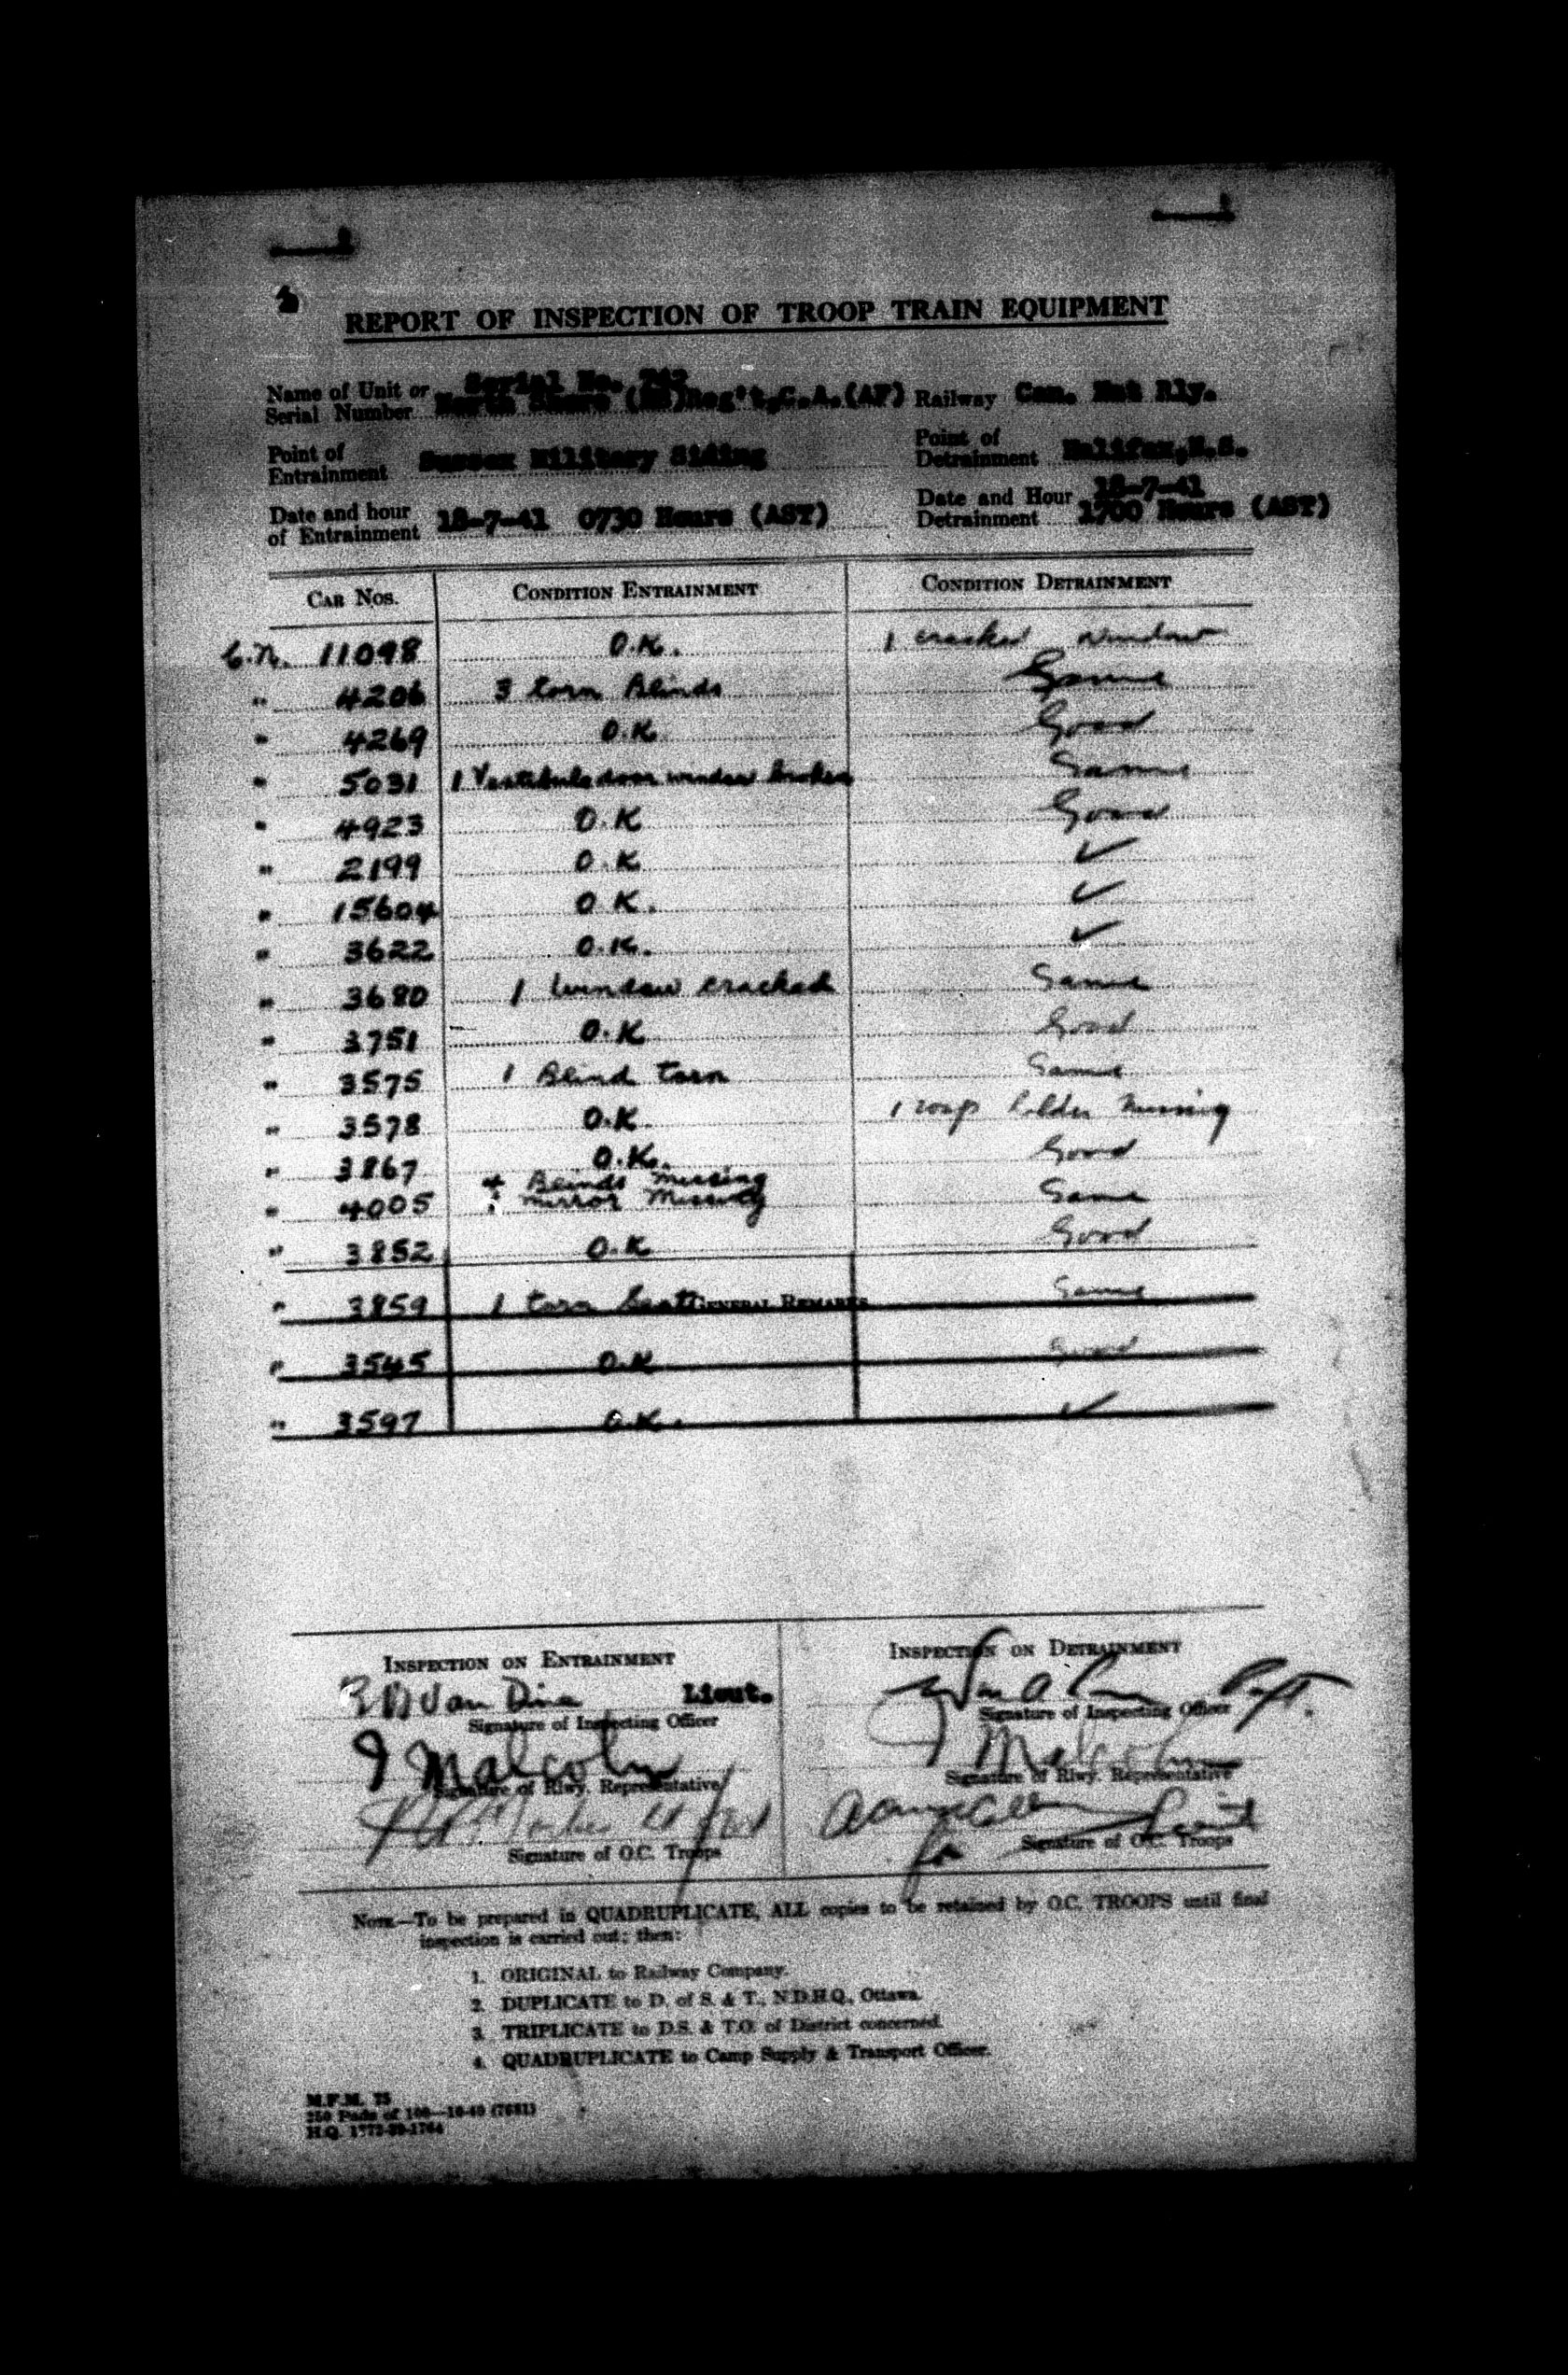 REPORT OF INSPECTION OF TROOP TRAIN EQUIPMENT
Name of Unit or Serial No.
Serial Number North Shore (NB)Reg't,C.A.(AF) Railway Can. Nat Rly.
Point of Entrainment Sussex Military Siding Point of Detrainment Halifax,N.S.
Date and hour of Entrainment 18-7-41 0730 Hours (AST) Date and Hour Detrainment 18-7-41 1700 Hours (AST)
CAR NOS. CONDITION ENTRAINMENT CONDITION DETRAINMENT
C.N. 11098 O.K. 1 cracked window
" 4206 3 torn Blinds Same
" 4269 O.K. Good
" 5031 1 Vestibule door window broken Same
" 4923 O.K Good
" 2199 O.K ✓
" 15604 O K. ✓
" 3622 O.K. ✓
" 3680 1 window cracked Same
" 3751 O.K. Good
" 3575 1 Blind torn Same
" 3578 O.K. 1 soap holder missing
" 3867 O.K. Good
" 4005 4 Blinds missing Same
1 mirror missing
" 3852 O.K Good
GENERAL REMARKS
" 3859 1 torn Seat Same
" 3545 O.K Good
" 3597 O.K. ✓
INSPECTION ON ENTRAINMENT INSPECTION ON DETRAINMENT
Van Dine Lieut. Capt.
Signature of Inspecting Officer Signature of Inspecting Officer
J Malcolm J Malcolm
Signature of Rlwy. Representative Signature of Rlwy. Representative
for Lieut
Signature of O.C. Troops Signature of O.C. Troops
NOTE—To be prepared in QUADRUPLICATE, ALL copies to be retained by O.C. TROOPS until final
inspection is carried out; then:
1. ORIGINAL to Railway Company.
2. DUPLICATE to D. of S. & T., N.D.H.Q., Ottawa.
3. TRIPLICATE to D.S. & T.O. of District concerned.
4. QUADRUPLICATE to Camp Supply & Transport Officer.
M.F.M. 75
250 Pads of 100—10-40 (7681)
H.Q. 1772-39-1764